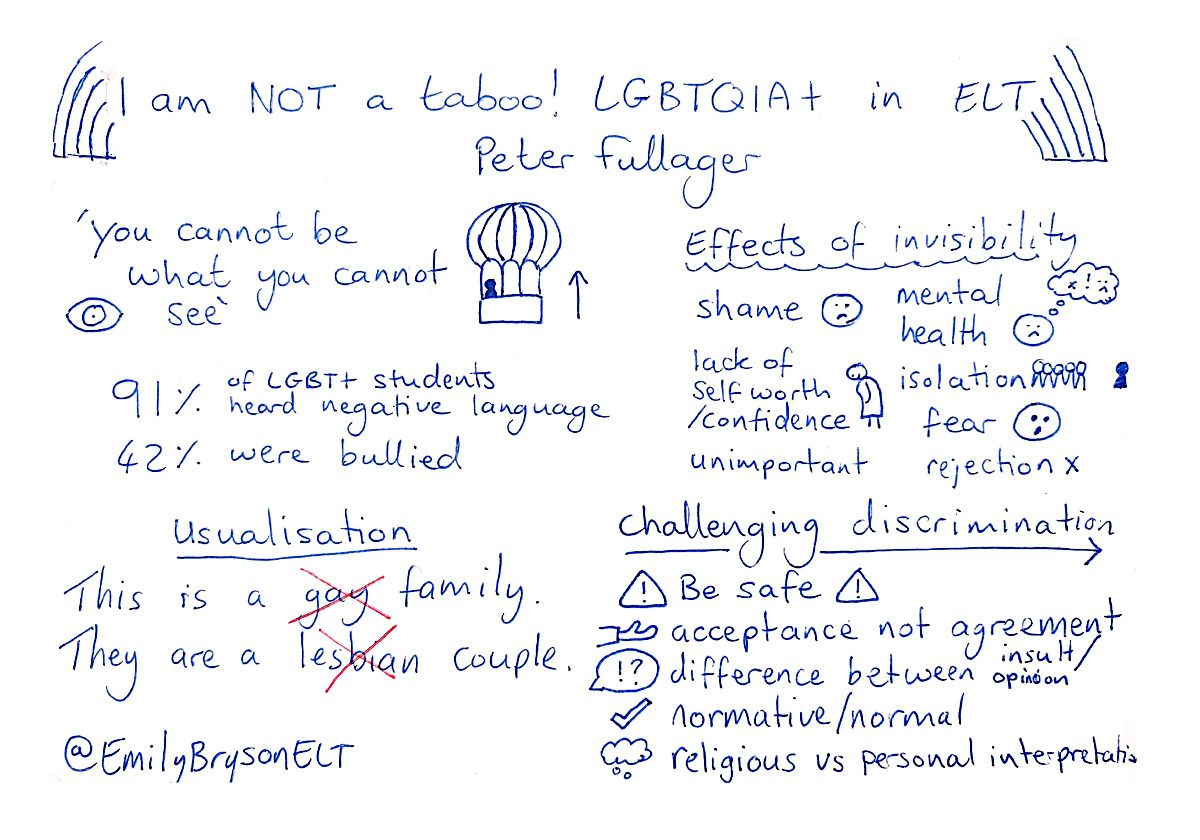 I am NOT a taboo! LGBTQIA+ in ELT
Peter Fullager
'You cannot be
what you cannot
see'
91% of LGBT+ students
heard negative language
42% were bullied
Effects of invisibility
shame
mental
health
lack of
self worth
/confidence
isolation
fear
unimportant
rejection x
Usualisation
This is a gay family.
They are a lesbian couple.
@EmilyBrysonELT
Challenging discrimination
Be safe
acceptance not agreement
!? difference between insult/
opinion
normative/normal
religious vs personal interpretatio